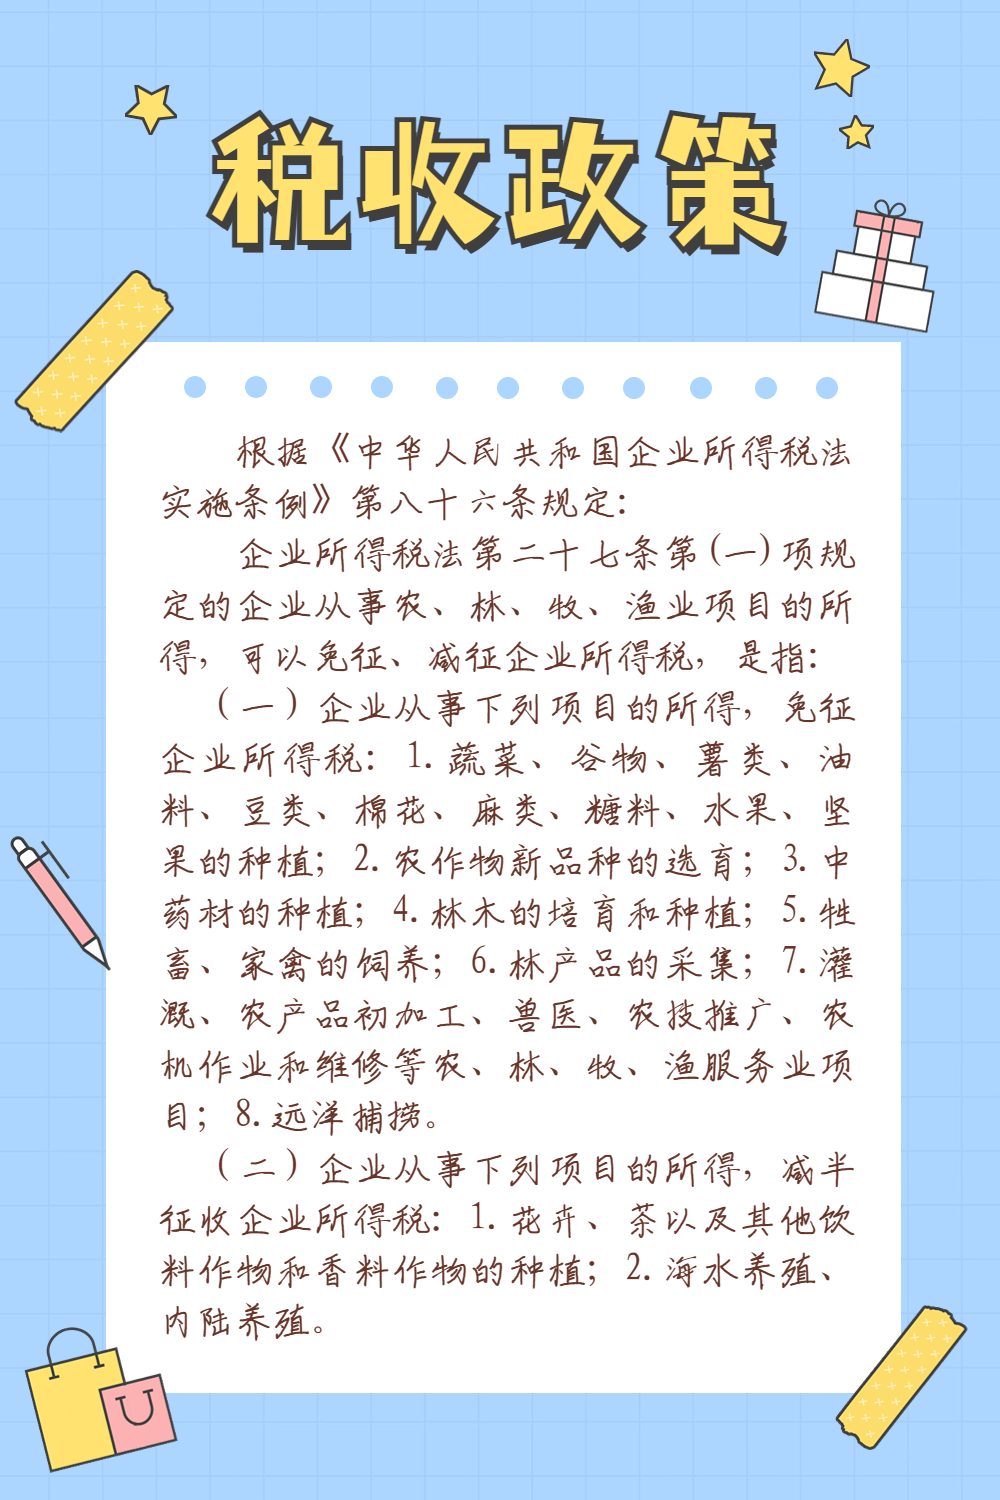 税收政策
根据《中华人民共和国企业所得税法
实施条例》第八十六条规定：
企业所得税法第二十七条第(一)项规
定的企业从事农、林、牧、渔业项目的所
得，可以免征、减征企业所得税，是指：
（一）企业从事下列项目的所得，免征
企业所得税：1.蔬菜、谷物、薯类、油
料、豆类、棉花、麻类、糖料、水果、坚
果的种植；2.农作物新品种的选育；3.中
药材的种植；4.林木的培育和种植；5.牲
畜、家禽的饲养；6.林产品的采集；7.灌
溉、农产品初加工、兽医、农技推广、农
机作业和维修等农、林、牧、渔服务业项
目；8.远洋捕捞。
（二）企业从事下列项目的所得，减半
征收企业所得税：1.花卉、茶以及其他饮
料作物和香料作物的种植；2.海水养殖、
内陆养殖。